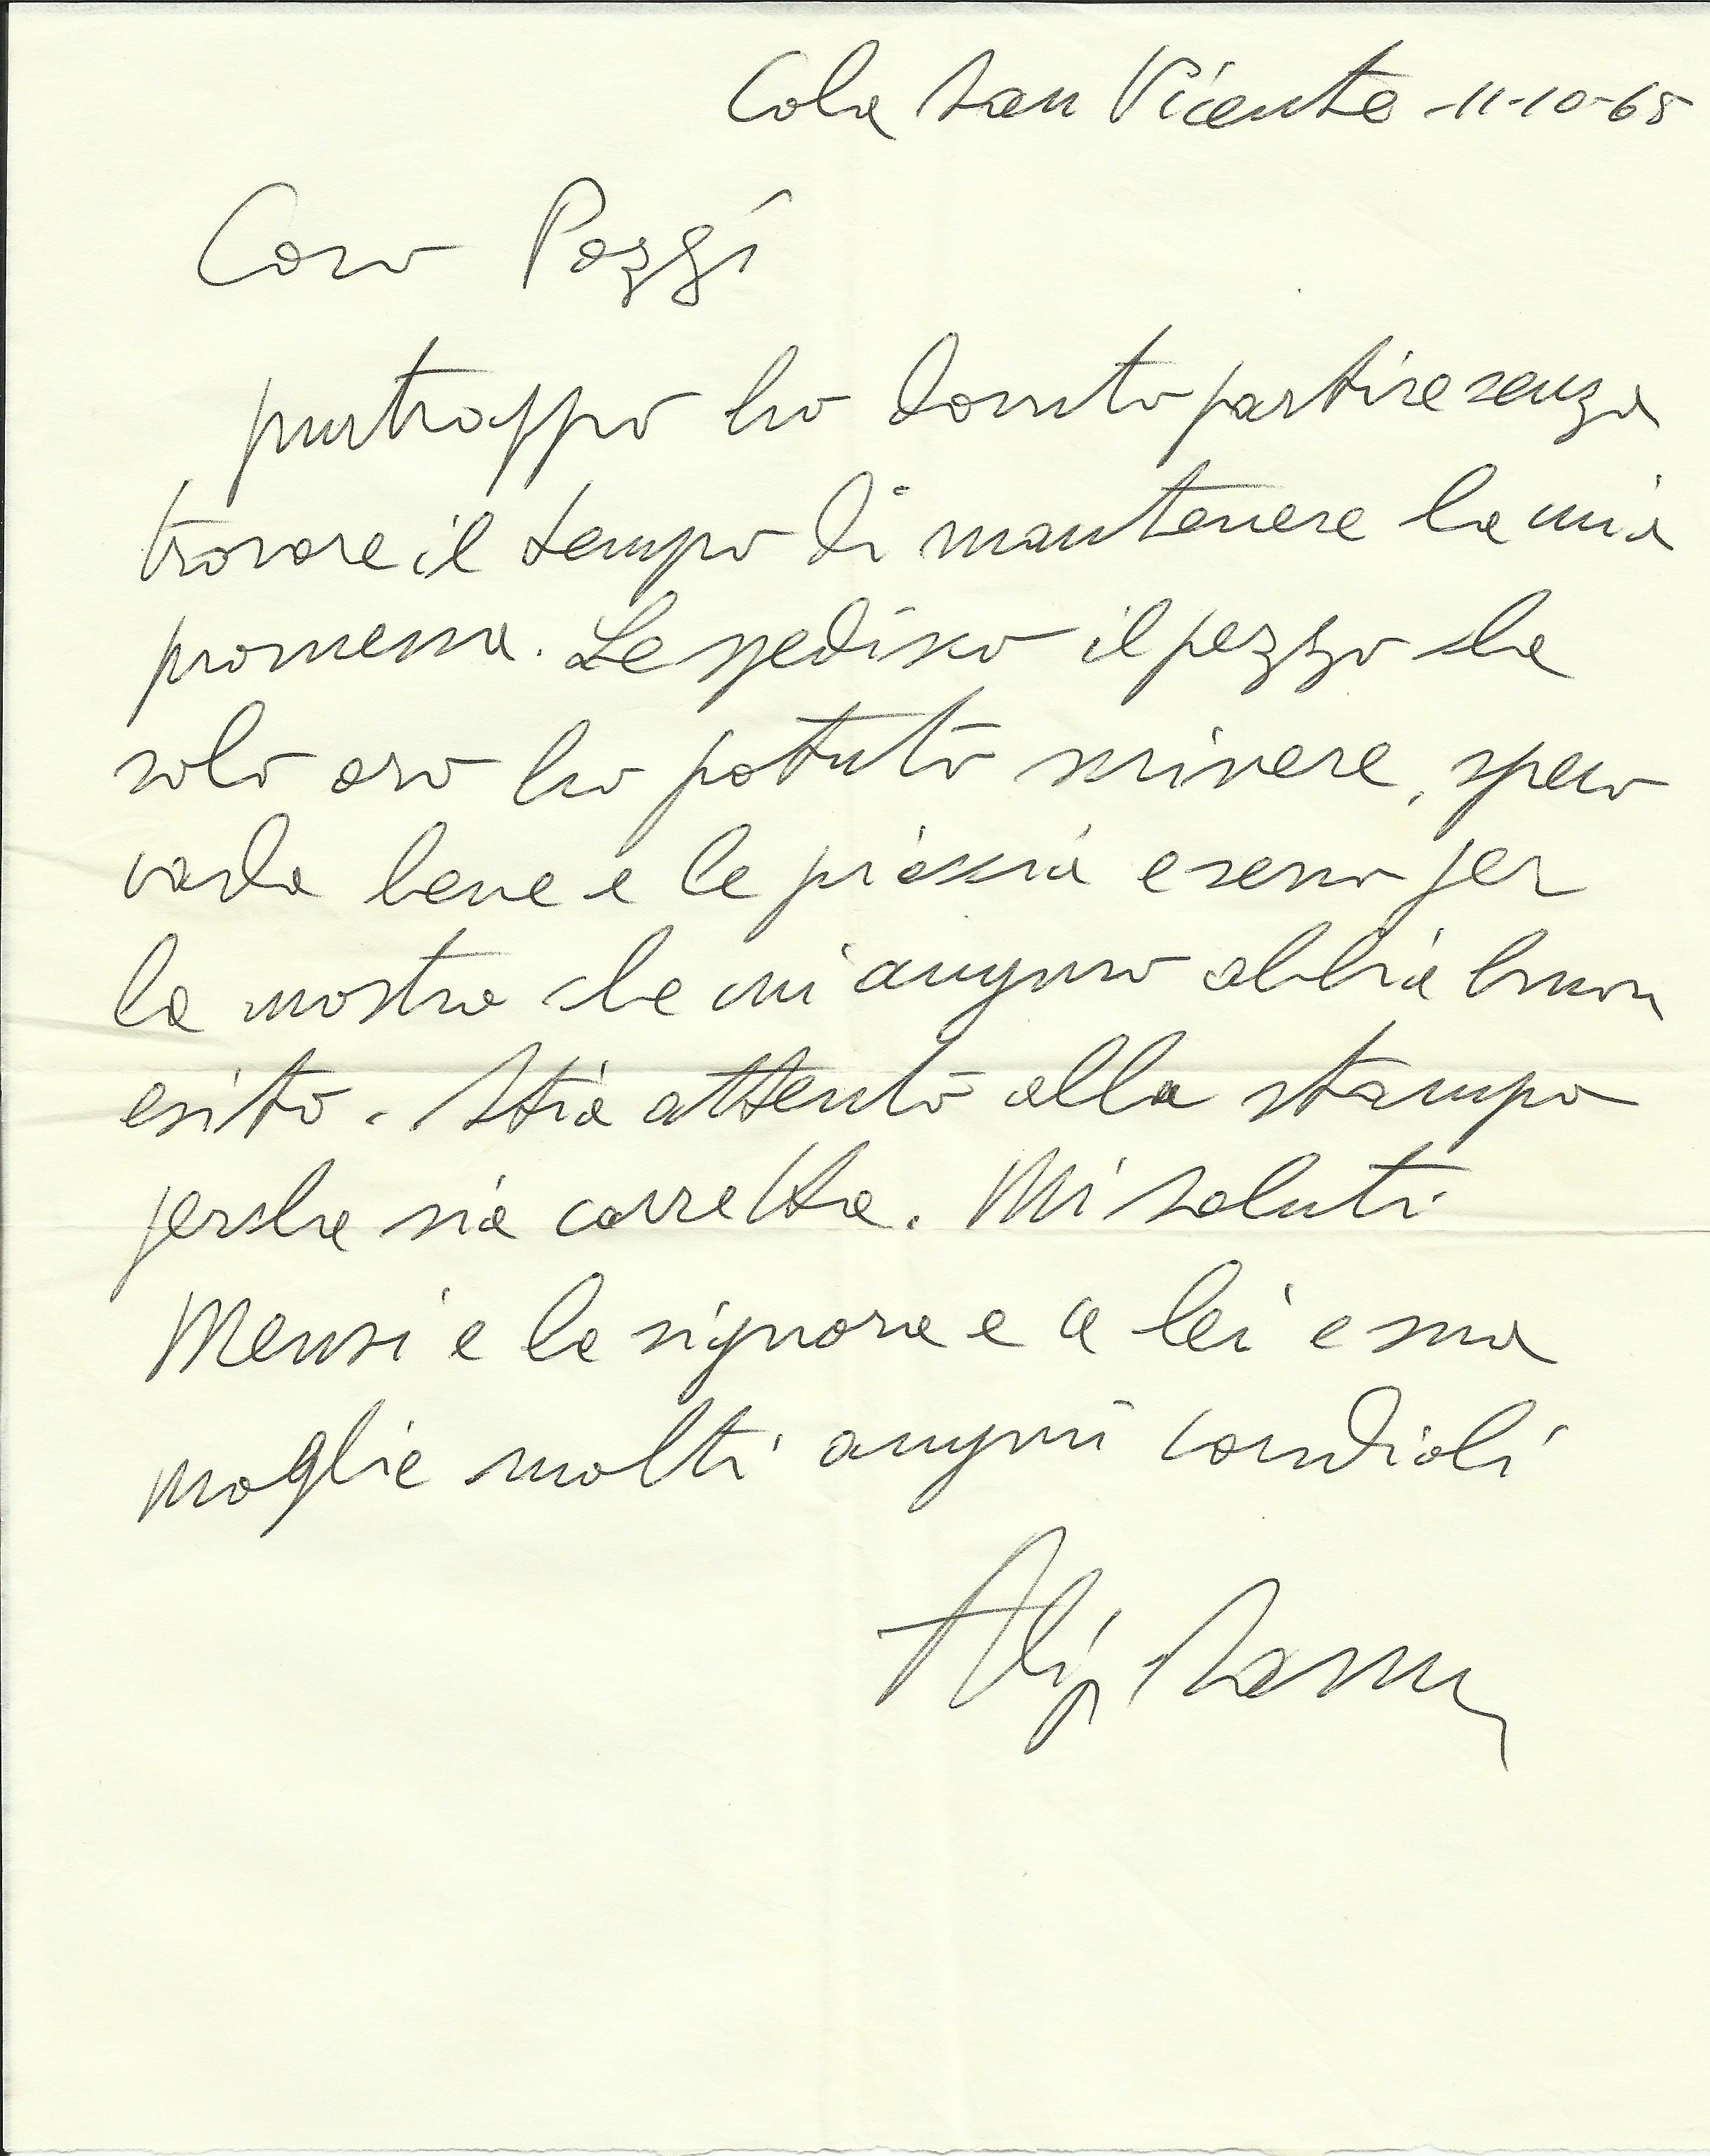 Cala San Vicente - 11-10-65
Caro Pozzi
purtroppo ho dovuto partire senza
trovare il tempo di mantenere la mia
promessa. Le spedisco il pezzo che
solo ora ho potuto scrivere, spero
vada bene e le piaccia e serva per
la mostra che mi auguro abbia buon
esito. Stia attento alla stampa
perche sia corretta. Mi saluti
Mensi e la signora e a lei e sua
moglie molti auguri cordiali